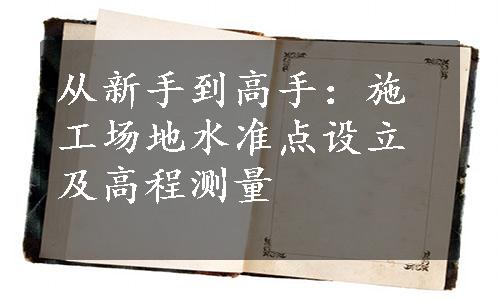 从新手到高手：施
工场地水准点设立
及高程测量